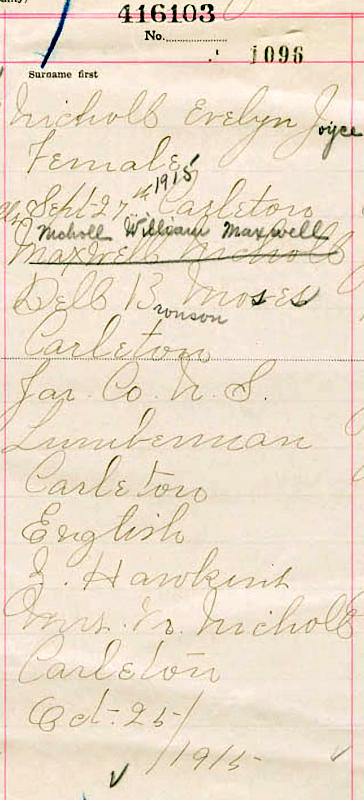 416103
No.
1096
Surname first
Nicholl Evelyn Joyce
Female
1915
Sept 27th Carleton
Nicholl William Maxwell
Maxwell Nicholl
Dell Bronson Moses
Carleton
Yar. Co. N. S.
Lumberman
Carleton
English
Hawkins
Mrs. Nicholl
Carleton
Oct. 25/
1915